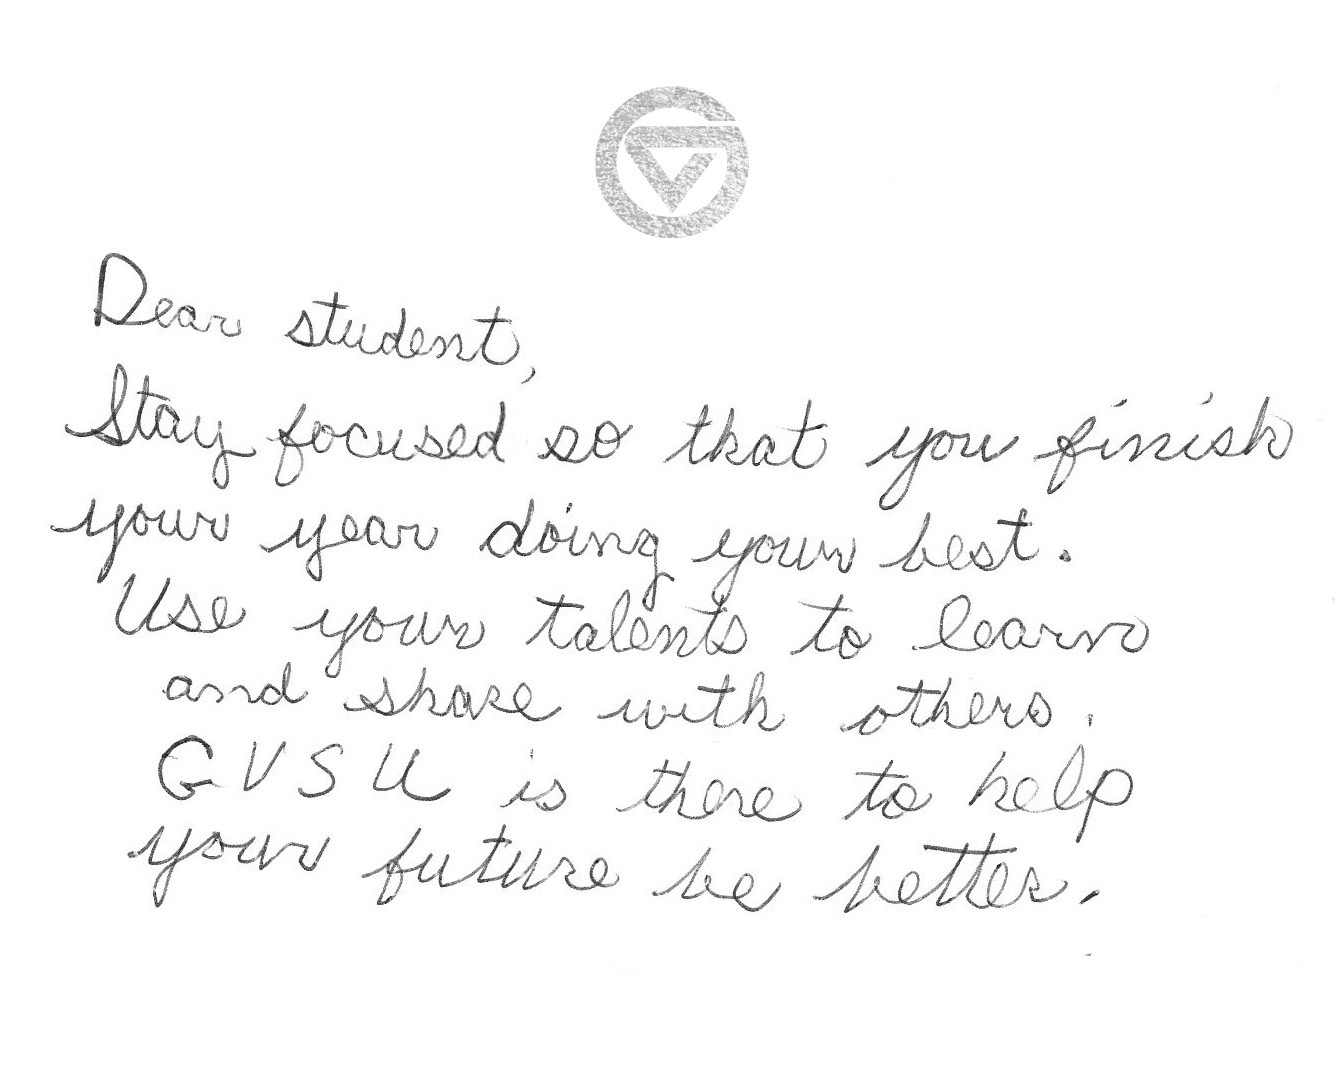 Dear student,
Stay focused so that you finish
your year doing your best.
Use your talents to learn
and share with others.
GVSU is there to help
your future be better.